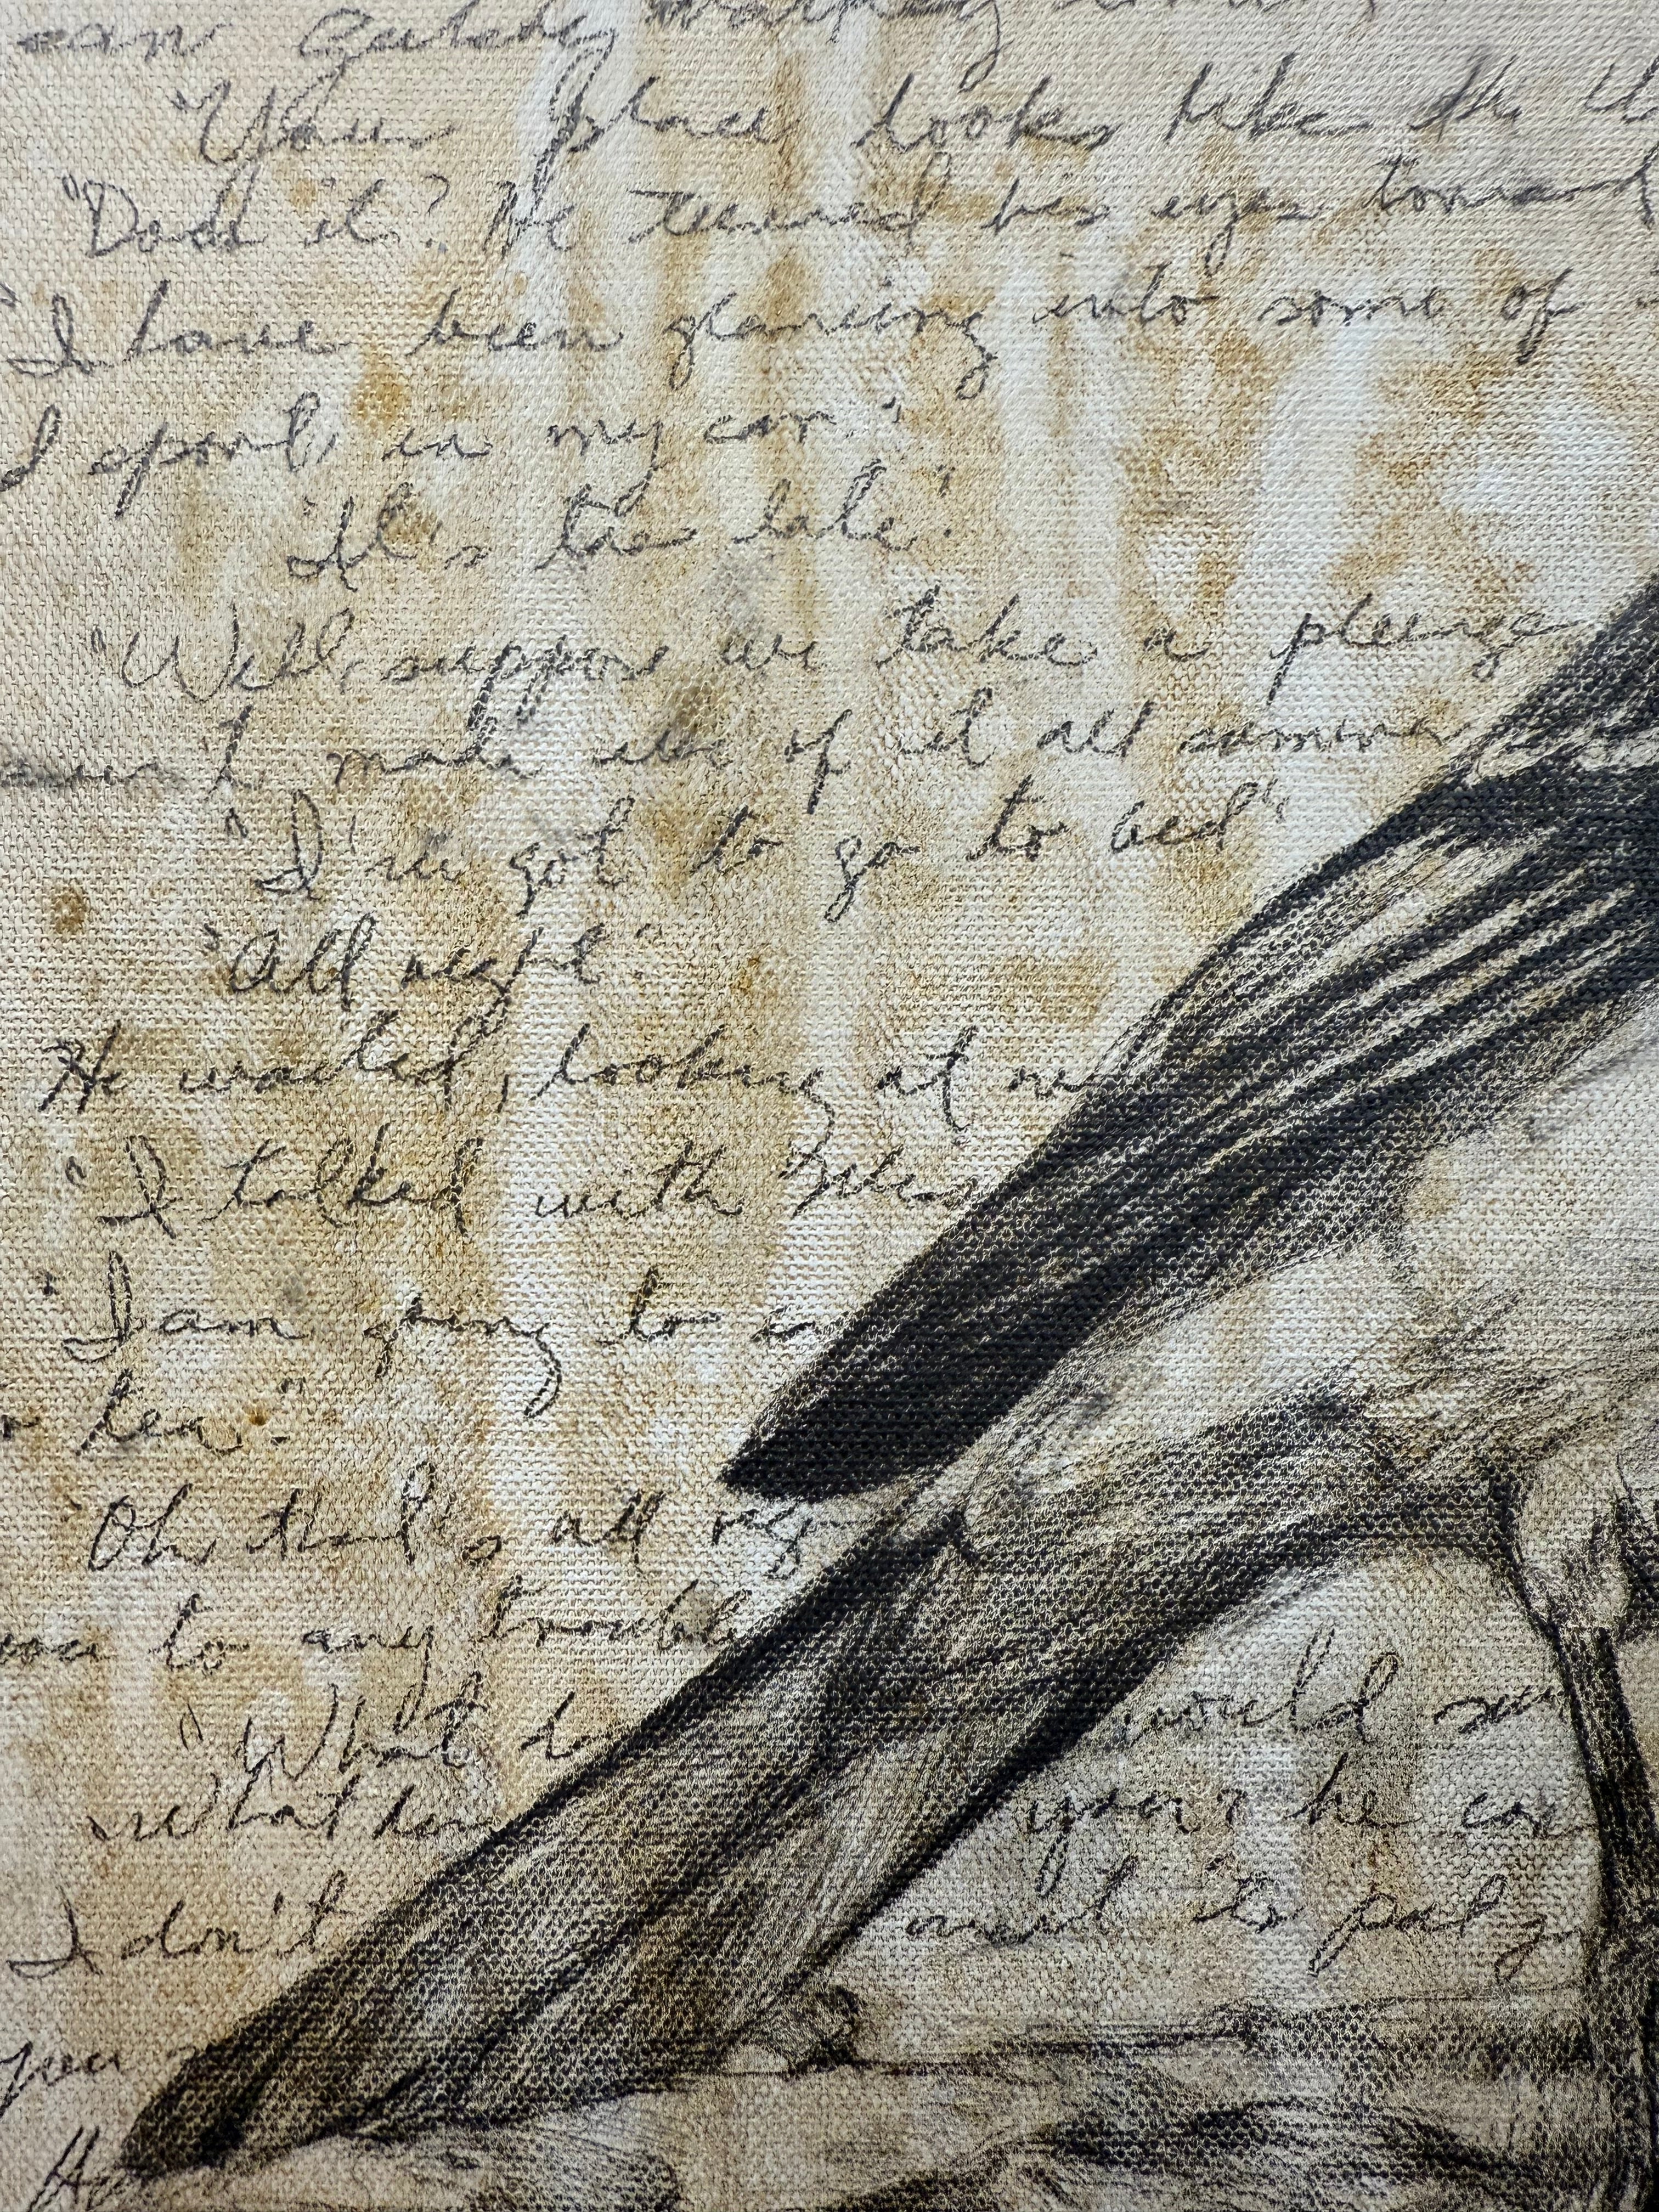 Gatsby walking
"Your place looks like the W
"Does it? He turned his eyes toward
"I have been glancing into some of
I sport, in my car."
"It's too late."
"Well, suppose we take a plunge
I made use of it all summer
"I've got to go to bed"
"All right".
He waited, looking at m
"I talked with Miss
"I am going to c
her."
Oh that's all rig
to any trouble
"What d would su
What da you? he co
I don't want to put y
you
He